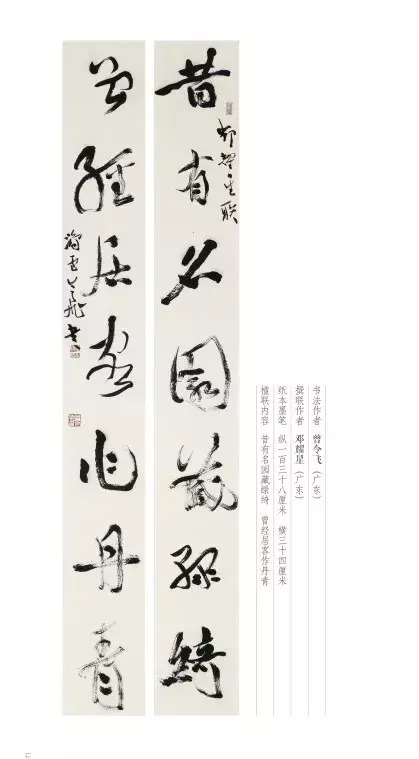 书法作者 曾令飞（广东）
撰联作者 邓耀星（广东）
纸本墨笔 纵一百三十八厘米 横三十四厘米
楹联内容 昔有名园藏绿绮 曾经居客作丹青
昔有名園藏绿绮
邓耀星联
曾經居客作丹青
令飛書